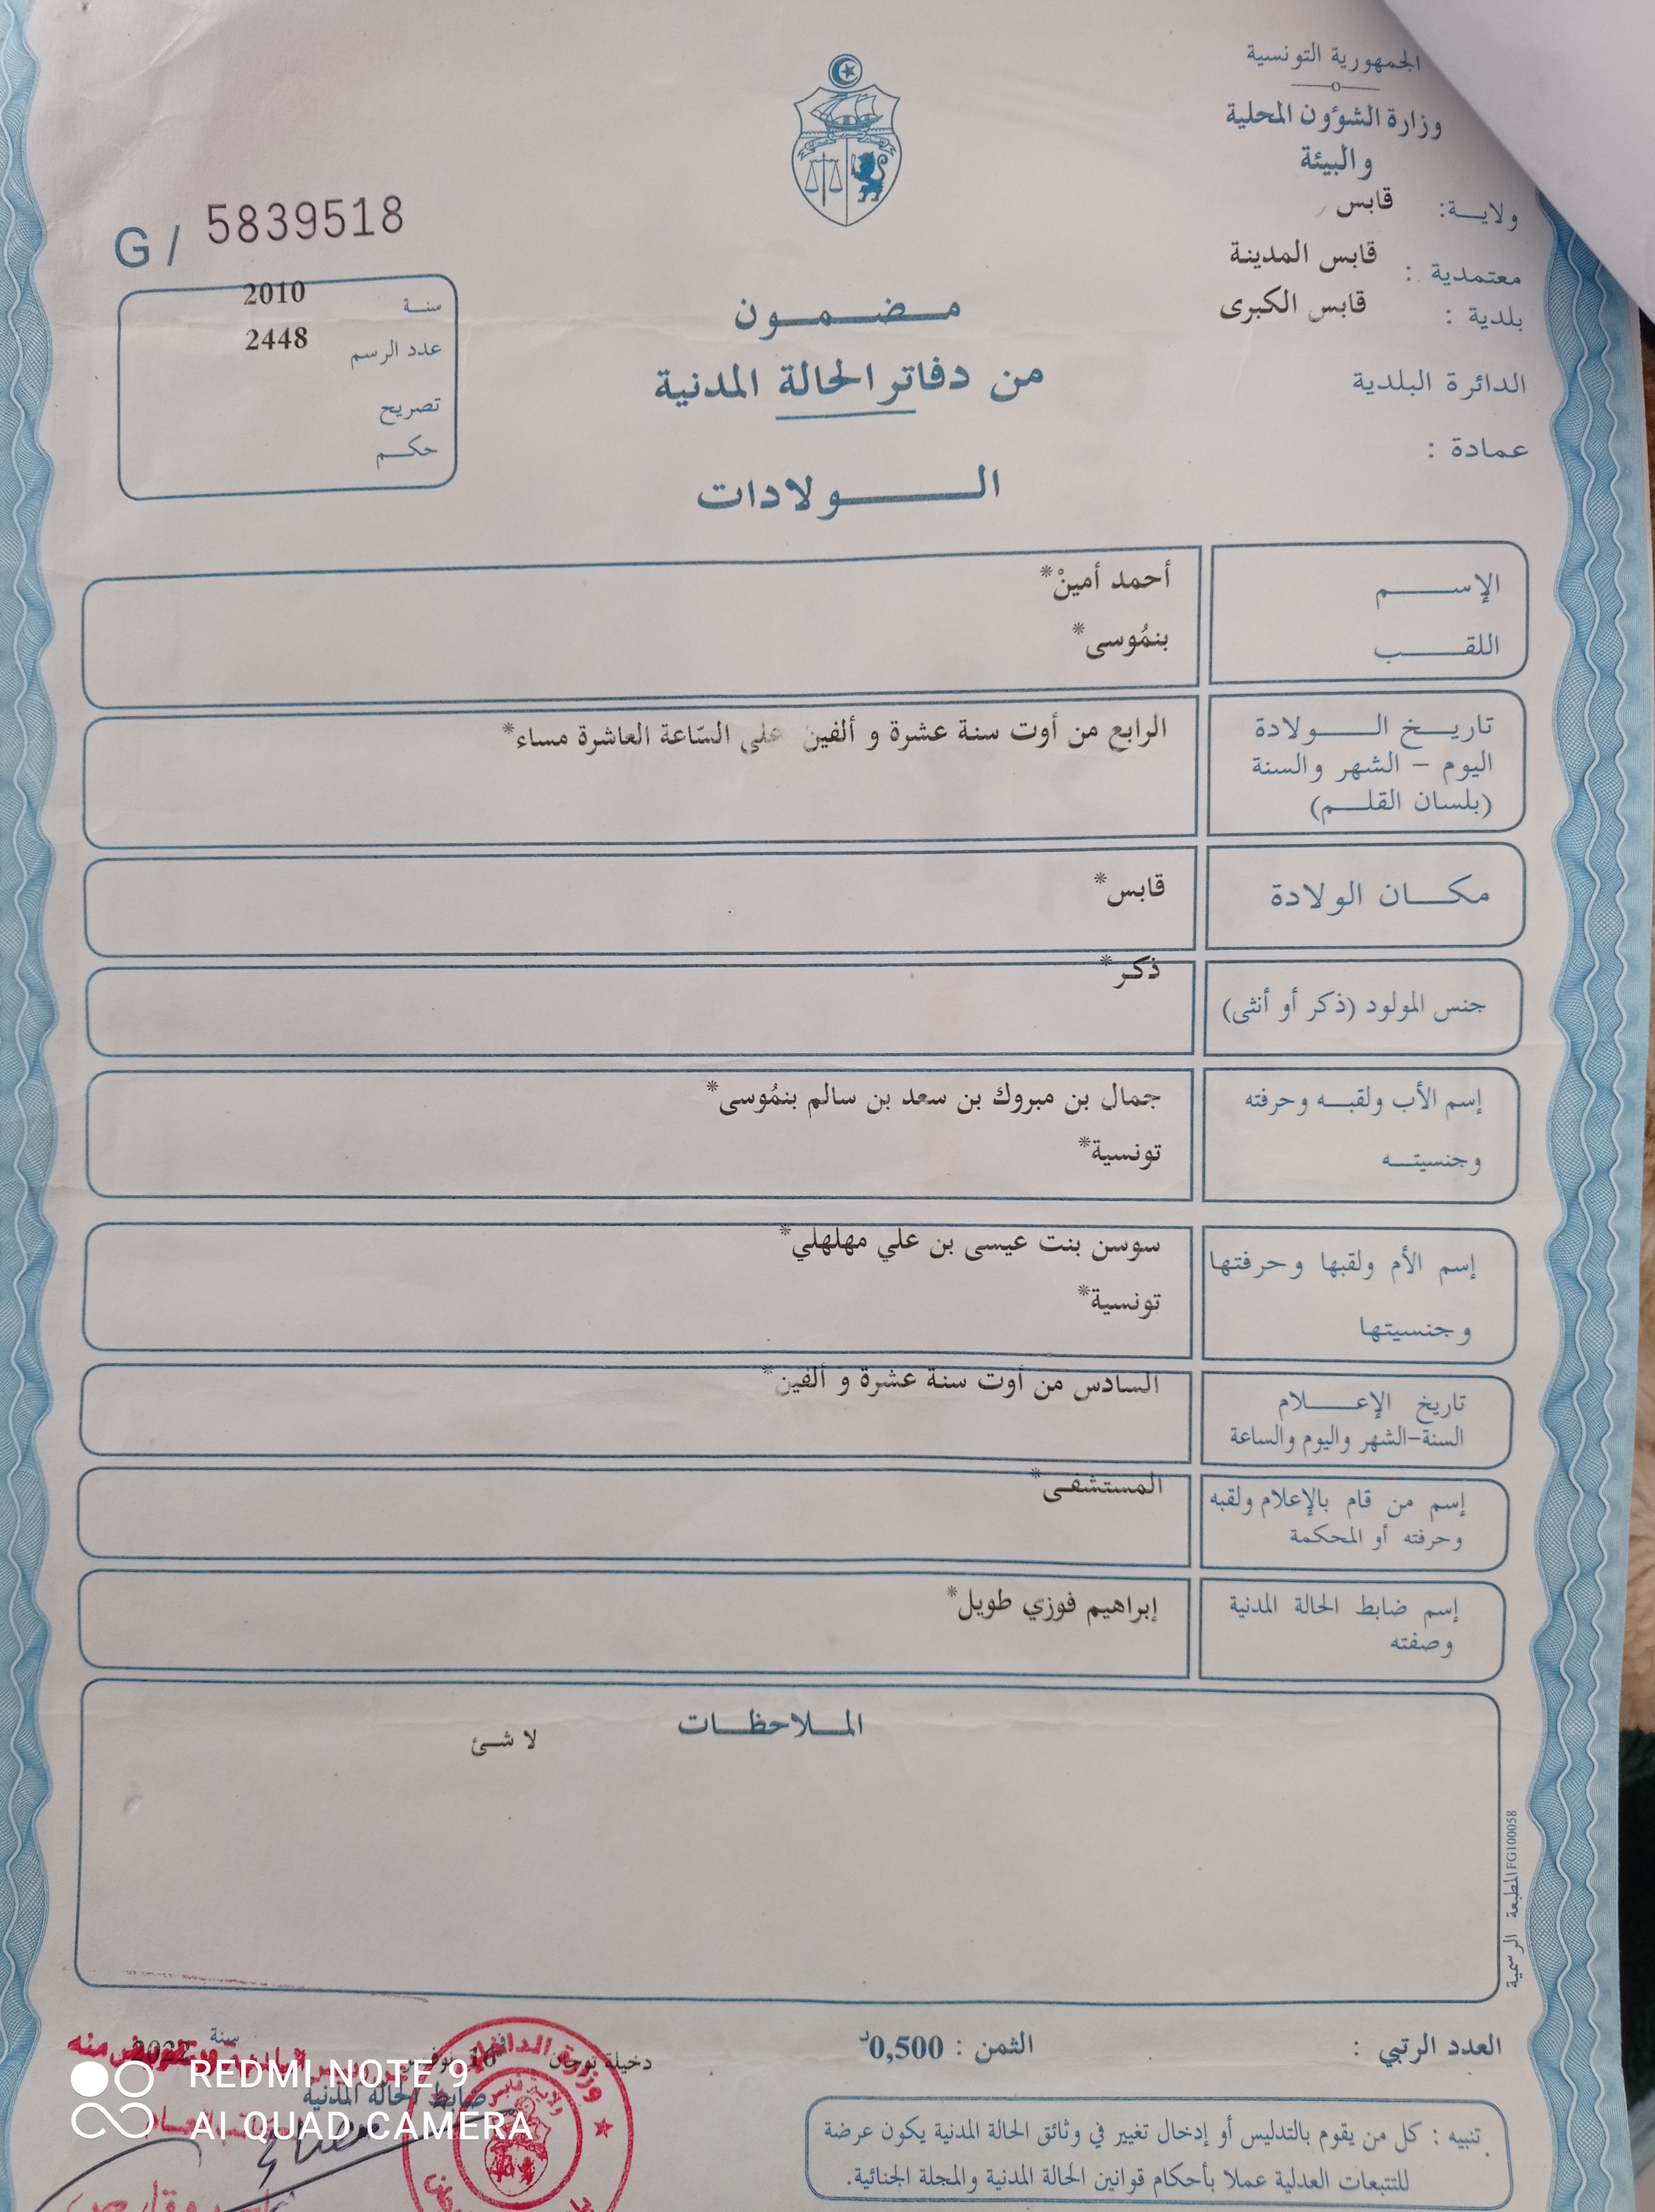 الجمهورية التونسية
وزارة الشؤون المحلية
والبيئة
ولاية: قابس
معتمدية : قابس المدينة
بلدية : قابس الكبرى
الدائرة البلدية
عمادة :
G / 5839518
سنة 2010
عدد الرسم 2448
تصريح
حكم
مضمون
من دفاتر الحالة المدنية
الولادات
الإسم أحمد أمينْ*
اللقب بنمُوسى*
تاريخ الولادة الرابع من أوت سنة عشرة و ألفين على السّاعة العاشرة مساء*
اليوم – الشهر والسنة
(بلسان القلم)
مكان الولادة قابس*
جنس المولود (ذكر أو أنثى) ذكر*
إسم الأب ولقبه وحرفته جمال بن مبروك بن سعد بن سالم بنمُوسى*
وجنسيته تونسية*
إسم الأم ولقبها وحرفتها سوسن بنت عيسى بن علي مهلهلي*
وجنسيتها تونسية*
تاريخ الإعلام السادس من أوت سنة عشرة و ألفين*
السنة-الشهر واليوم والساعة
إسم من قام بالإعلام ولقبه المستشفى*
وحرفته أو المحكمة
إسم ضابط الحالة المدنية إبراهيم فوزي طويل*
وصفته
الملاحظات
لا شئ
المطبعة الرسمية FG100058
العدد الرتبي :
الثمن : 0,500د
دخيلة توجان 16 نوفمبر سنة 2022
ضابط الحالة المدنية
وزارة الداخلية
ولاية قابس
تنبيه : كل من يقوم بالتدليس أو إدخال تغيير في وثائق الحالة المدنية يكون عرضة
للتتبعات العدلية عملا بأحكام قوانين الحالة المدنية والمجلة الجنائية.
REDMI NOTE 9
AI QUAD CAMERA